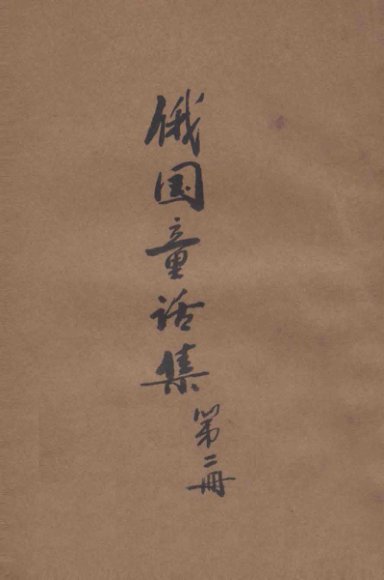 俄国童话集
第二册